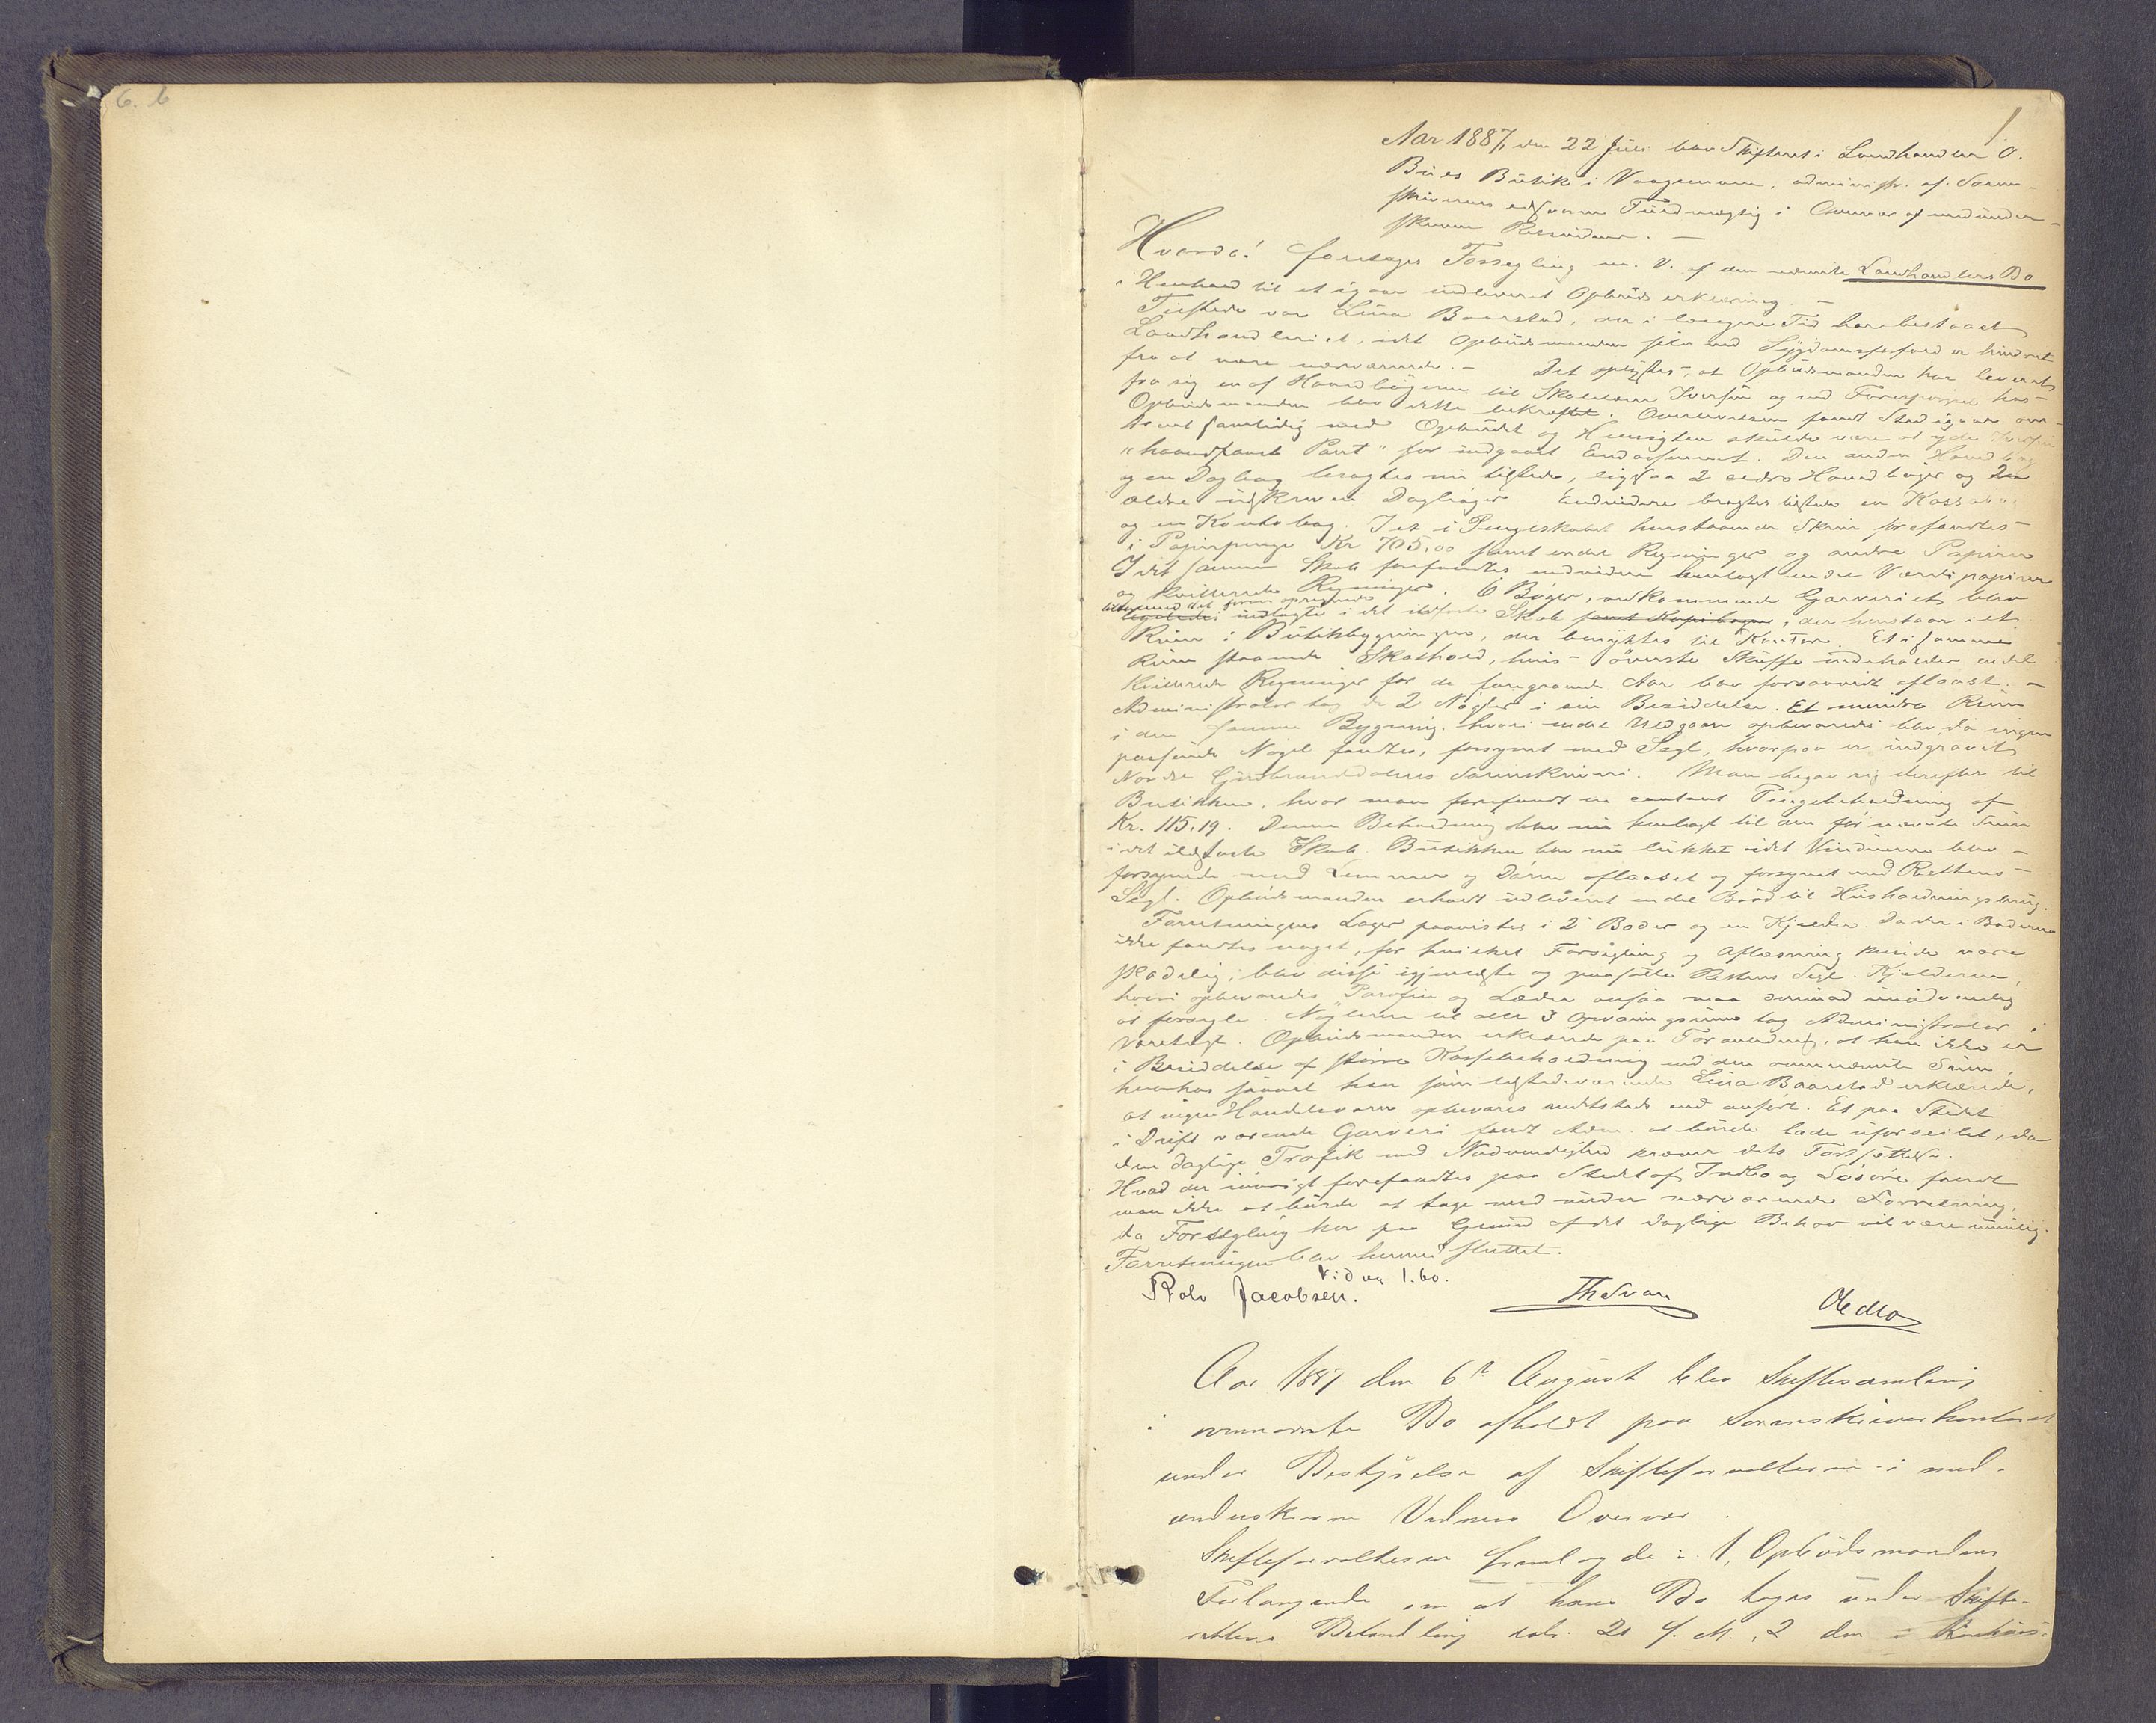 6. b
1
Aar 1887, den 22 Juli blev Skifteret i Landhandler O.
Bües Butik i Vaagemoen, administr. af Soren-
skriverens edsvorne Fuldmægtig i Overvær af medunder-
skrevne Retsvidner. —
Hvorda! foretages Forsegling m. v. af den nævnte Landhandlers Bo
i Henhold til et igaar indleveret Opbuds erklæring. —
Tilstede var Lina Baarstad, der i længere Tid har bestaaet
Landhandleriet, idet Opbudsmanden selv ved Sygdomsforfald er hindret
fra at være nærværende. — Det oplystes, at Opbudsmanden har leveret
fra sig en af Hovedbøgerne til Skolelærer Iversen og ved Forespørgsel hos
Opbudsmanden blev dette bekræftet. Overleverelsen fandt Sted igaar om-
trent samtidig med Opbudet og Hensigten skulde være at yde
"haandfaaet Pant" for indgaaet Endossement. Den anden Hovedbog
og en Dagbog bragtes nu tilstede, ligesaa 2 ældre Hovedbøger og 2
ældre udskrevne Dagbøger. Endvidere bragtes tilstede en Kassabog
og en Kontobog. I et i Pengeskabet henstaaende Skrin forefandtes
i Papirpenge Kr 705,00 samt endel Regninger og andre Papirer
I det samme Skab forefandtes endvidere henlagt endel Værdipapirer
og kvitterede Regninger. 6 Bøger, vedkommende Garveriet, blev
tilligemed det forøvr. opregnede
ligeledes indlagte i det ildfaste Skab samt Kopibogen, der henstaar i et
Rum i Butikbygningen, der benyttes til Kontor. Et i samme
Rum staaende Skathold, hvis øverste Skuffe indeholder endel
kvitterede Regninger for de foregaaende Aar blev forsaavidt aflaast. —
Administrator tog de 2 Nøgler i sin Besiddelse. Et mindre Rum
i den samme Bygning, hvori endel Uldgarn opbevaredes blev, da ingen
passende Nøgel fandtes, forsynet med Segl, hvorpaa er indgravet
Nordre Gudbrandsdalens Sorenskriveri. Man begav sig derefter til
Butikken, hvor man forefandt en contant Pengebeholdning af
Kr. 115.19. Denne Beholdning blev nu henlagt til den før nævnte Sum
i det ildfaste Skab. Butikken blev nu lukket idet Vinduerne blev
forsynede med Lemmer og Døren aflaaset og forsynet med Rettens
Segl. Opbudsmanden erholdt udleveret endel Brød til Husholdningsbrug.
Forretningens Lager paavistes i 2 Boder og en Kjelder. Da der i Boderne
ikke fandtes noget, for hvilket Forsegling og Aflæsning kunde være
skadelig, blev disse igjenlaaste og paasatte Rettens Segl. Kjelderen,
hvori opbevaredes Parafin og Læder ansaa man derimod unødvendig
at forsegle. Nøglerne til alle 3 Opvaringsrum tog Administrator i
Varetægt. Opbudsmanden erklærede paa Foranledning, at han ikke er
i Besiddelse af større Kassebeholdning end den ovennævnte Sum,
hvorhos saavel han som tilstedeværende Lina Baarstad erklærede,
at ingen Handelsvarer opbevares andetsteds end anført. Et paa Stedet
i Drift værende Garveri fandt Adm. at burde lade uforseilet, da
den daglige Trafik med Nødvendighed kræver dets Fortsættelse.
Hvad der iøvrigt forefandtes paa Stedet af Indbo og Løsøre fandt
man ikke at burde at tage med under nærværende Forretning,
da Forsegling her paa Grund af det daglige Behov vil være umulig.
Forretningen blev hermed sluttet.
Vidner 1.60.
Rolv Jacobsen. Th Svare Ole Mo
Aar 1887 den 6te August blev Skiftesamling
i ovennævnte Bo afholdt paa Sorenskriverkontoret
under Bestyrelse af Skifteforvalteren i med-
underskrevne Vidners Overvær.
Skifteforvalteren fremlagde: 1, Opbudsmandens
Forlangende om at hans Bo tages under Skifte-
rettens Behandling dat. 21 f. M., 2 den i